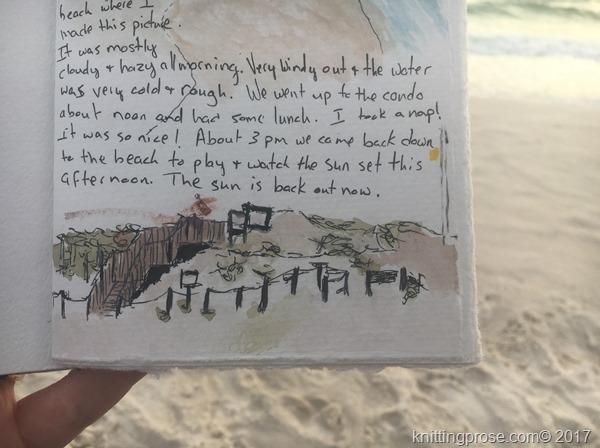 beach where I
made this picture.
It was mostly
cloudy + hazy all morning. Very windy out + the water
was very cold + rough. We went up to the condo
about noon and had some lunch. I took a nap!
it was so nice! About 3 pm we came back down
to the beach to play + watch the sun set this
afternoon. The sun is back out now.
knittingprose.com© 2017